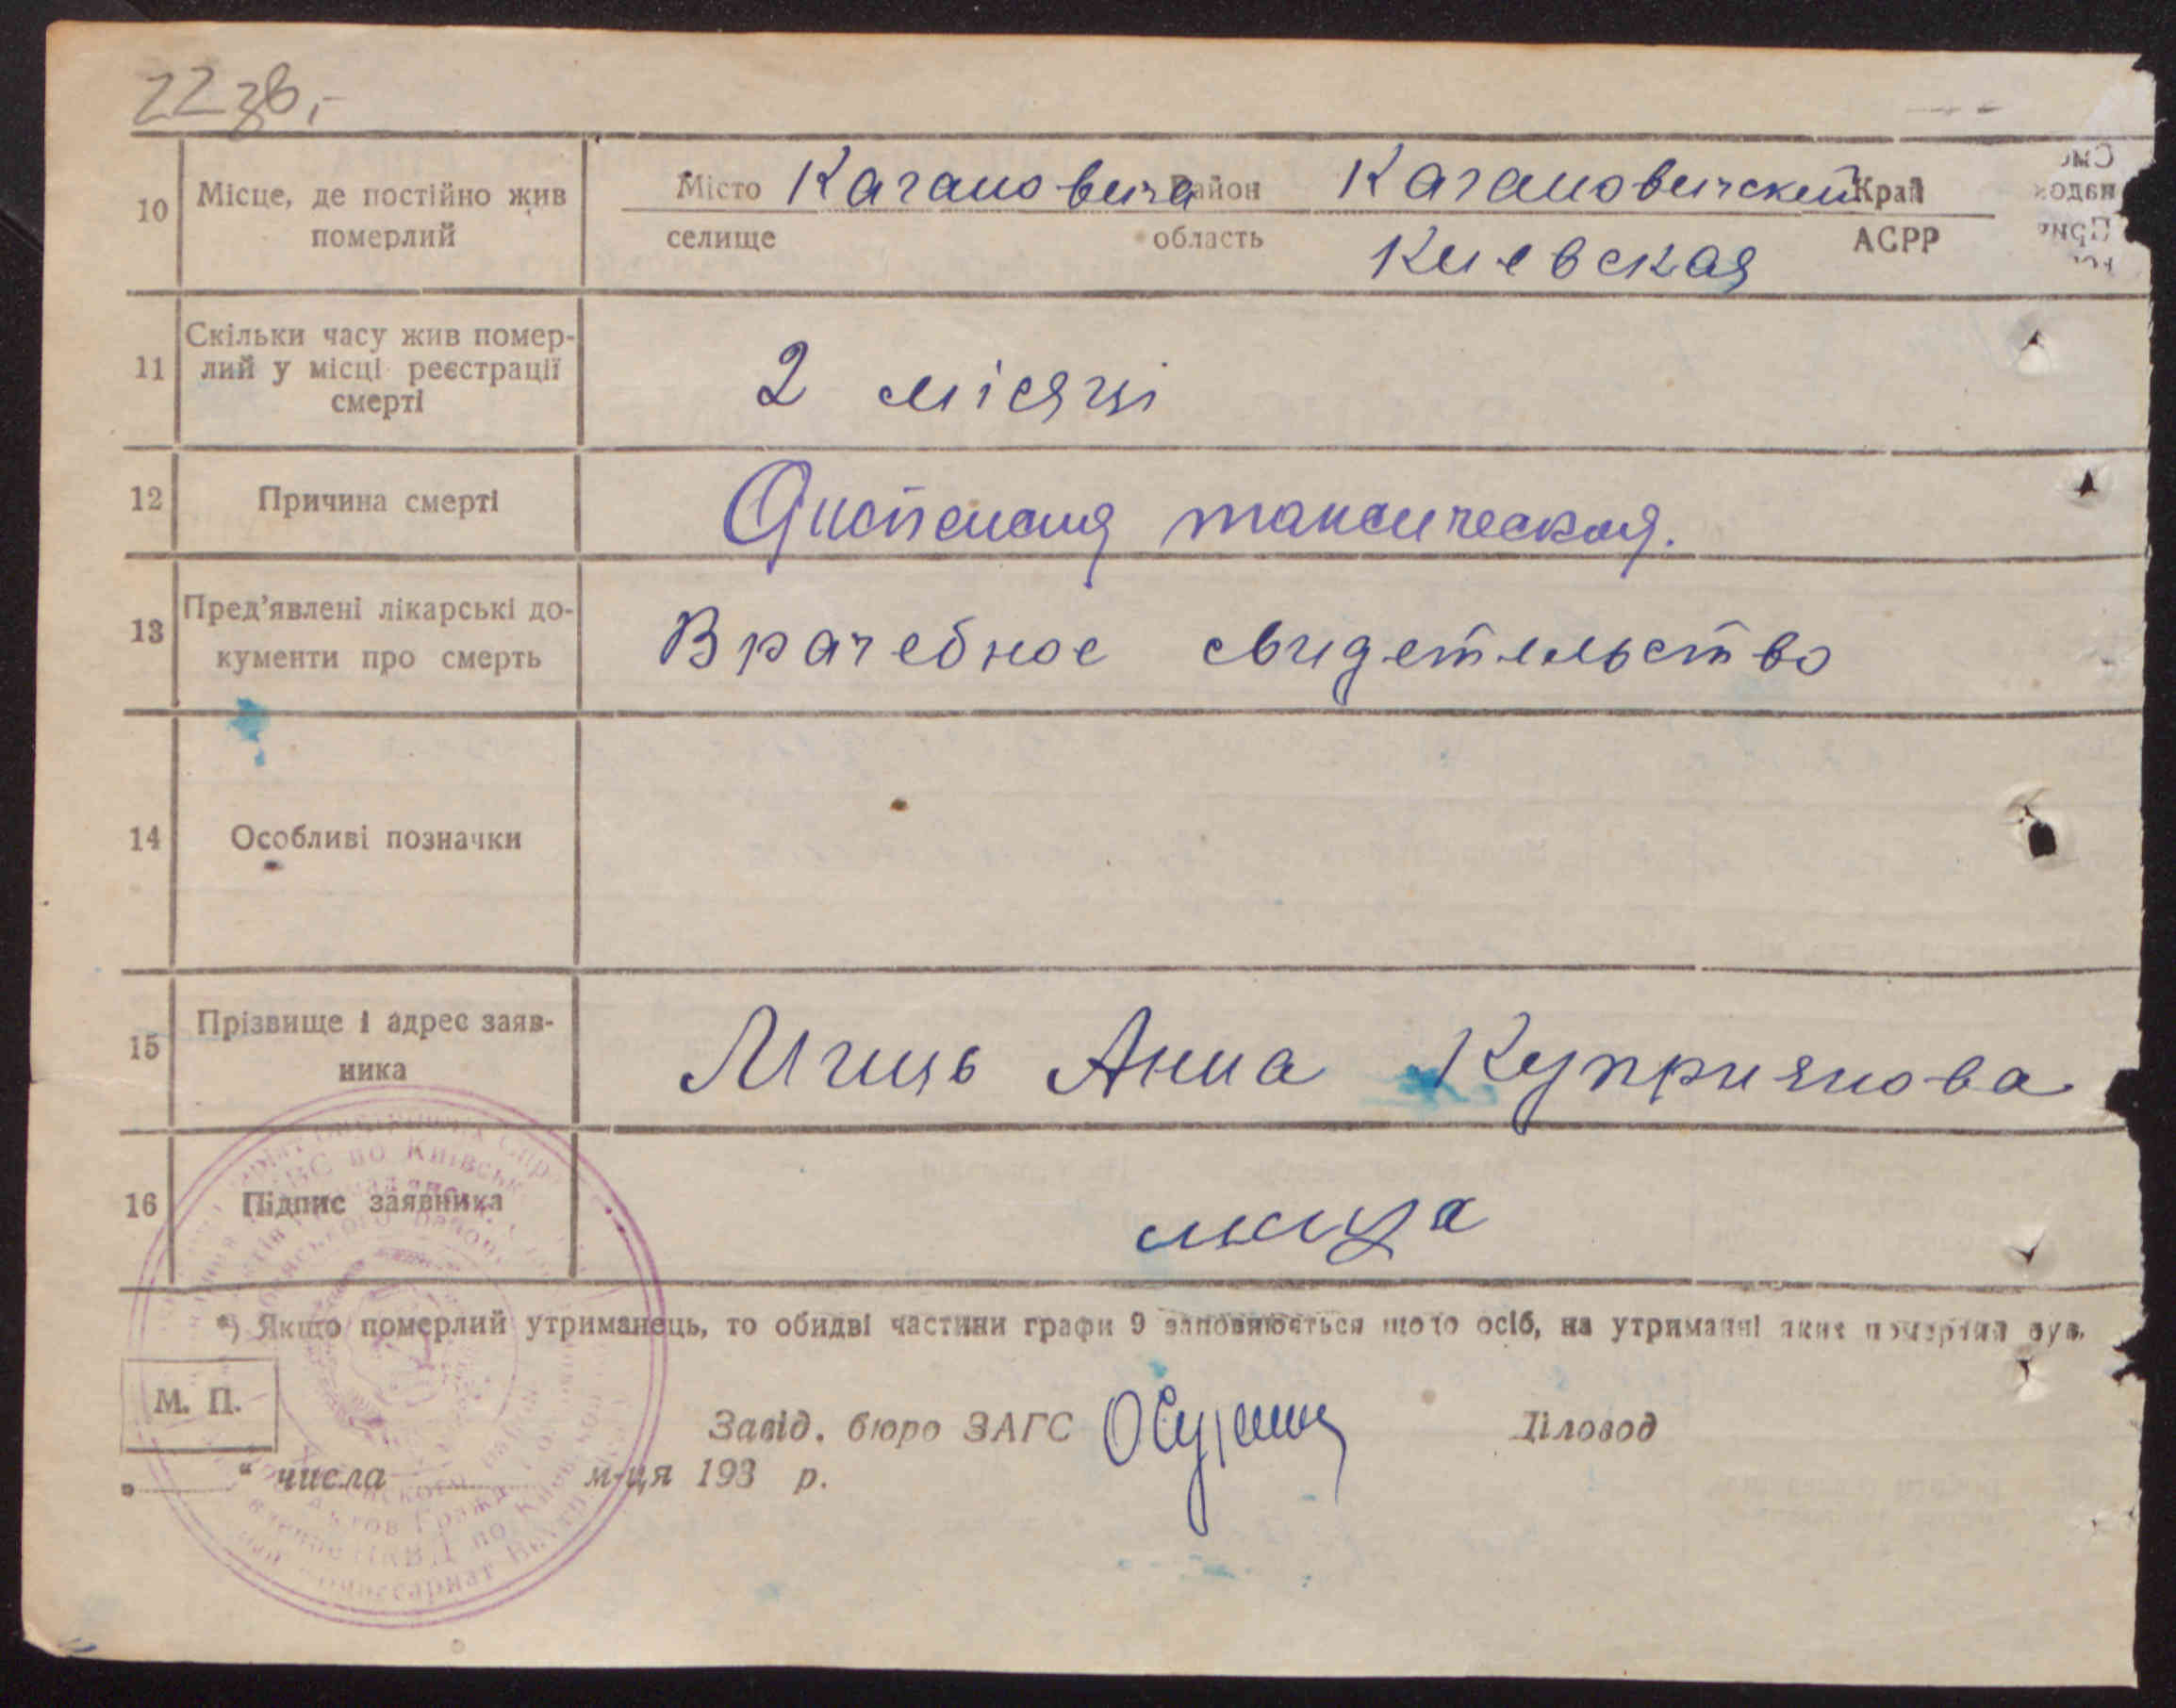 22 зв.
10 Місце, де постійно жив померлий
Місто Кагановича Район Кагановичский Край
селище область Киевская АСРР
11 Скільки часу жив помер-
лий у місці реєстрації
смерті
2 місяці
12 Причина смерті
Диспепсия токсическая.
13 Пред’явлені лікарські до-
кументи про смерть
Врачебное свидетельство
14 Особливі позначки
15 Прізвище і адрес заяв-
ника
Анна Куприянова
16 Підпис заявника
*) Якщо померлий утриманець, то обидві частини графи 9 заповнюється щодо осіб, на утриманні яких померлий був.
М. П.
Завід. бюро ЗАГС Діловод
„ “ числа м-ця 193 р.